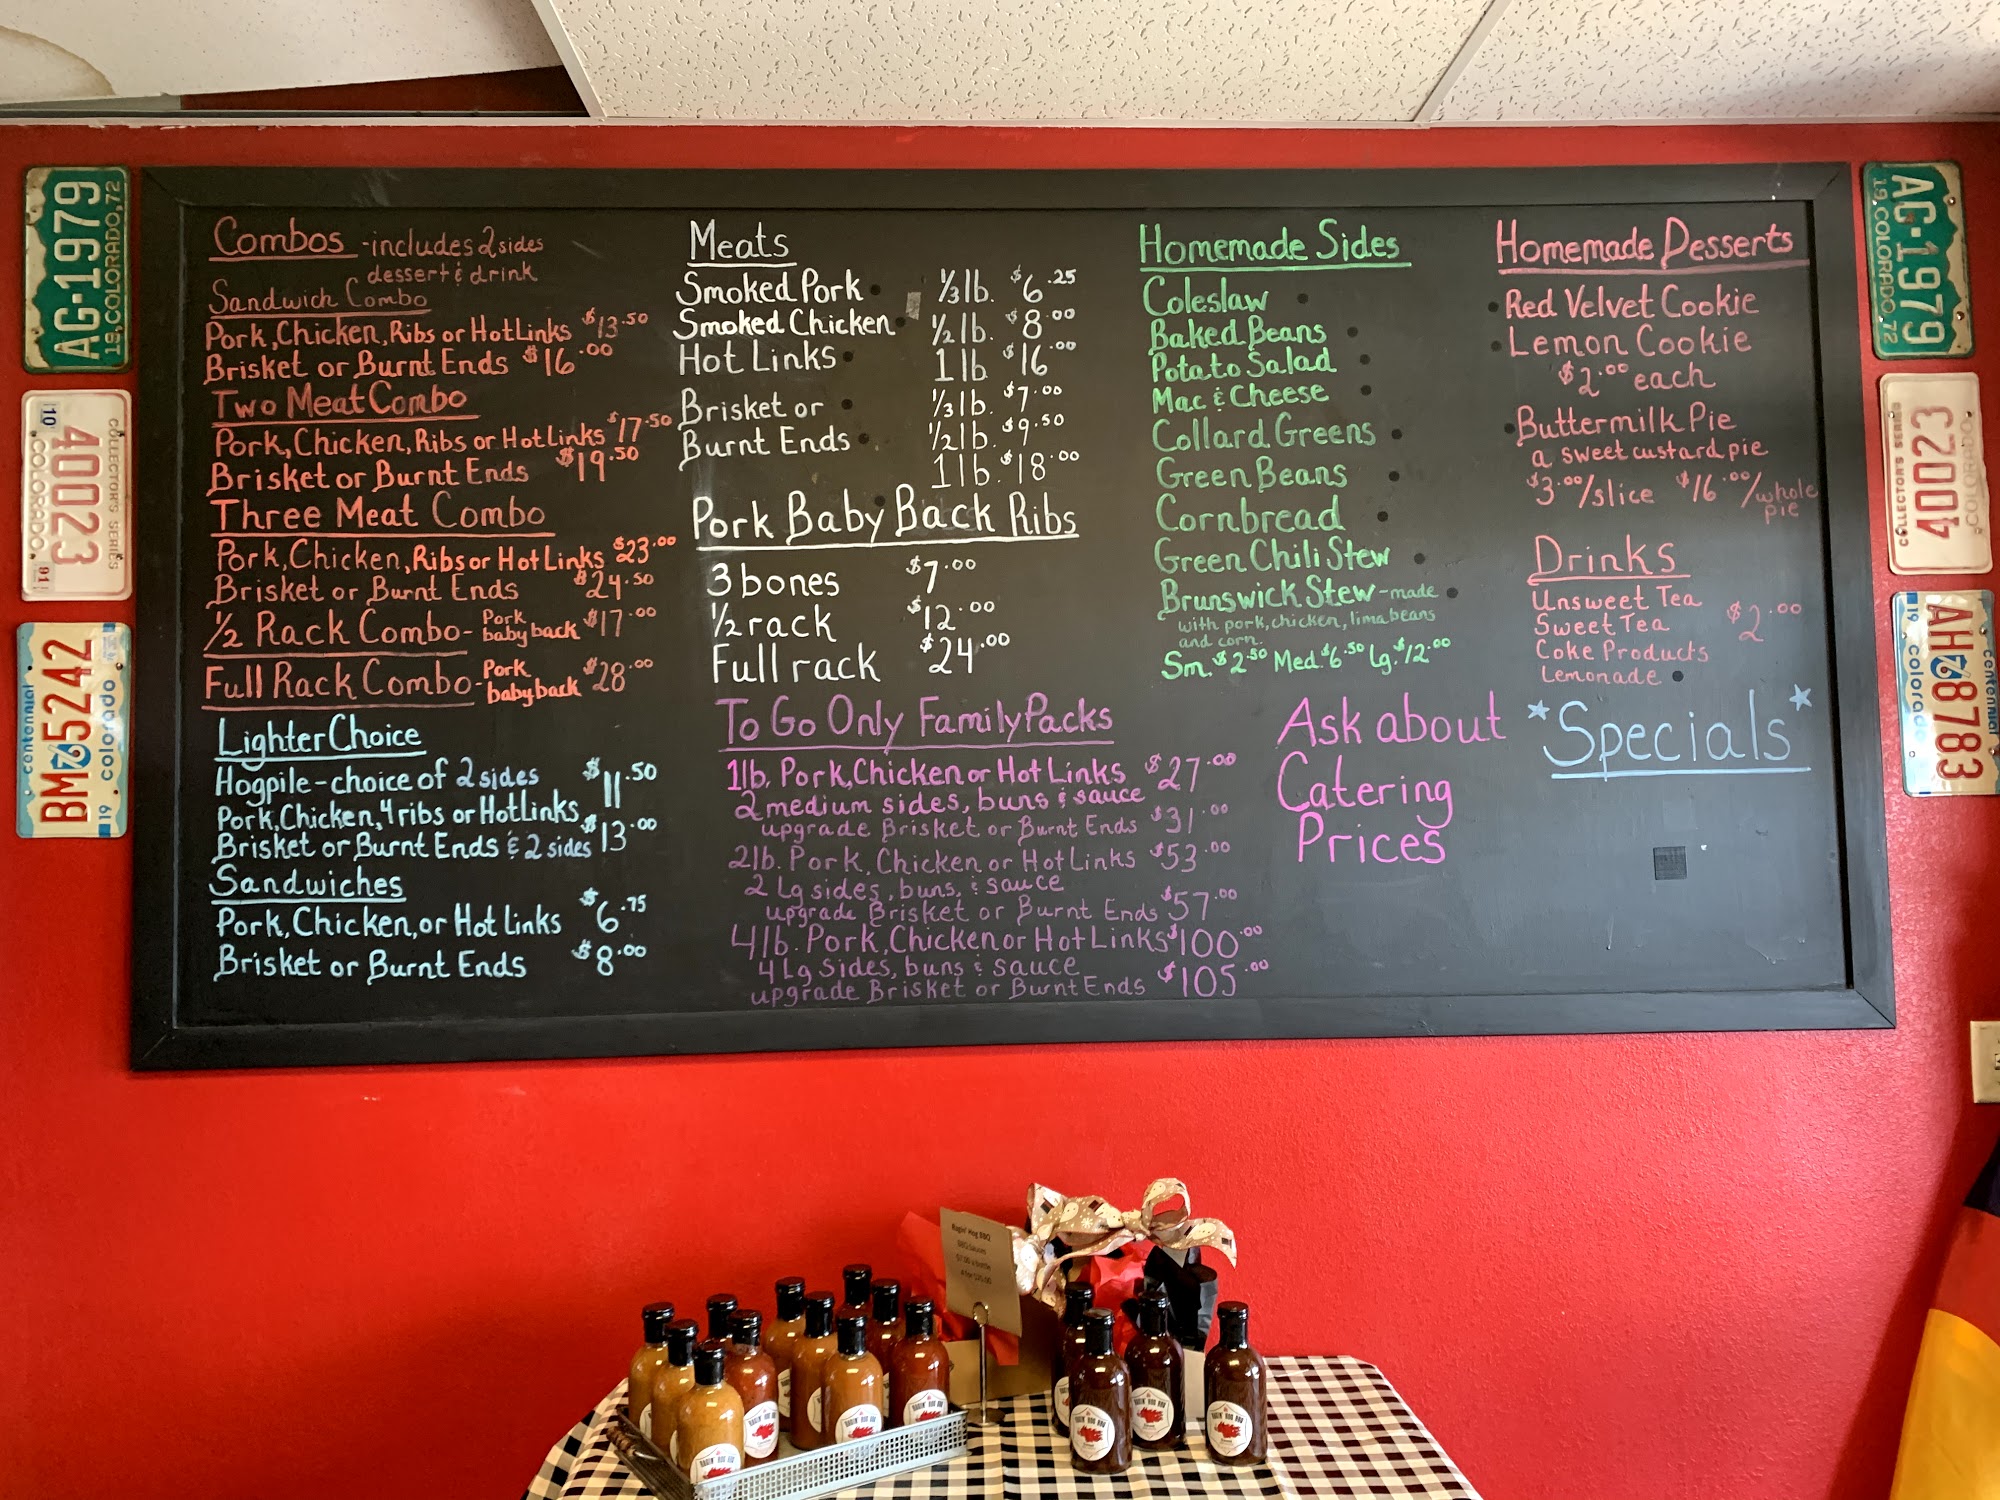 Combos - includes 2 sides
dessert & drink
Sandwich Combo
Pork, Chicken, Ribs or Hot Links $13.50
Brisket or Burnt Ends $16.00
Two Meat Combo
Pork, Chicken, Ribs or Hot Links $17.50
Brisket or Burnt Ends $19.50
Three Meat Combo
Pork, Chicken, Ribs or Hot Links $23.00
Brisket or Burnt Ends $24.50
1/2 Rack Combo - Pork baby back $17.00
Full Rack Combo - Pork baby back $28.00
Lighter Choice
Hogpile - choice of 2 sides
Pork, Chicken, 4 ribs or Hot Links $11.50
Brisket or Burnt Ends & 2 sides $13.00
Sandwiches
Pork, Chicken, or Hot Links $6.75
Brisket or Burnt Ends $8.00
Meats
Smoked Pork 1/3 lb. $6.25
Smoked Chicken 1/2 lb. $8.00
Hot Links 1 lb $16.00
Brisket or 1/3 lb. $7.00
Burnt Ends 1/2 lb. $9.50
1 lb. $18.00
Pork Baby Back Ribs
3 bones $7.00
1/2 rack $12.00
Full rack $24.00
To Go Only Family Packs
1 lb. Pork, Chicken or Hot Links $27.00
2 medium sides, buns & sauce
upgrade Brisket or Burnt Ends $31.00
2 lb. Pork, Chicken or Hot Links $53.00
2 Lg sides, buns, & sauce
upgrade Brisket or Burnt Ends $57.00
4 lb. Pork, Chicken or Hot Links $100.00
4 Lg Sides, buns & sauce
upgrade Brisket or Burnt Ends $105.00
Homemade Sides
Coleslaw
Baked Beans
Potato Salad
Mac & Cheese
Collard Greens
Green Beans
Cornbread
Green Chili Stew
Brunswick Stew - made
with pork, chicken, lima beans
and corn.
Sm. $2.50 Med. $6.50 Lg. $12.00
Ask about
Catering
Prices
Homemade Desserts
Red Velvet Cookie
Lemon Cookie
$2.00 each
Buttermilk Pie
a sweet custard pie
$3.00/slice $16.00/whole
pie
Drinks
Unsweet Tea
Sweet Tea $2.00
Coke Products
Lemonade
*Specials*
AG-1979
19, COLORADO, 72
COLLECTOR'S SERIES
40023
COLORADO
10
91
centennial
BM 76 5242
19 colorado
AG-1979
19 COLORADO 72
COLLECTOR'S SERIES
40023
COLORADO
centennial
AH 76 8783
19 colorado
Ragin' Hog BBQ
BBQ Sauces
$7.00 a bottle
RAGIN' HOG BBQ
RAGIN' HOG BBQ
RAGIN' HOG BBQ
RAGIN' HOG BBQ